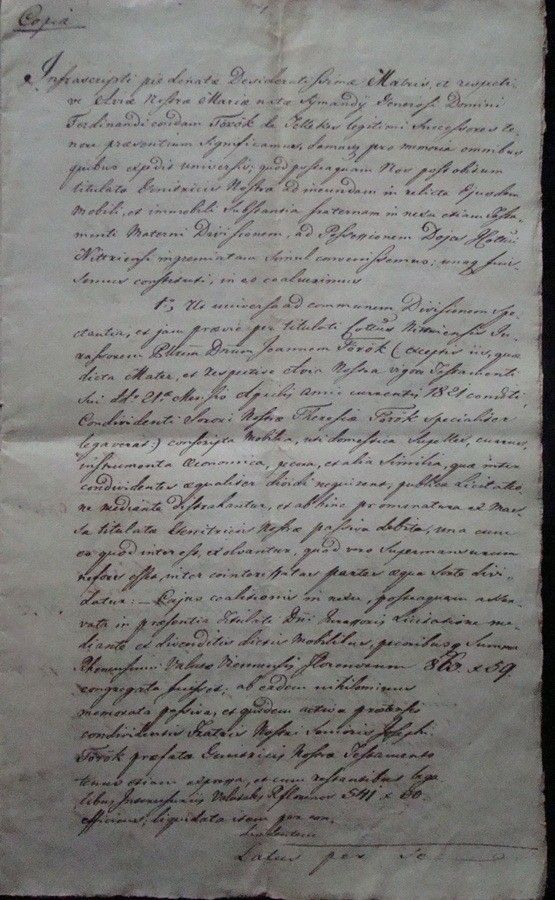 Copia
Infrascripti pie denatae Desideratissimae Matris, et respecti-
ve Aviae Nostrae Mariae natae Symandÿ Generosi Domini
Ferdinandi condam Török de Tellekes legitimi Successores te-
nore praesentium Significamus, damusq pro memoria omnibus
quibus expedit universis; quod posteaquam Nos post obitum
titulatae Genitricis Nostrae ad ineundam in relicta Ejusdem
Mobili, et immobili Substantia fraternam in nexu etiam Testa-
menti Materni Divisionem, ad Possessionem
Nittriensi ingremiatam Simul convenissemus; unaq fuis-
semus constituti, in eo coaluimus
1o, Ut universa ad communem Divisionem spe-
ctantia, et jam praevie per titulati Cottus Nittriensis Ju-
rassorem Dnum Joannem Török (exceptis iis, quae
dicta Mater, et respective Avia Nostra vigore Testamenti
Sui ddo 21a Mensis Aprilis anni currentis 1821 conditi,
Condividenti Sorori Nostrae Theresiae Török specialiter
legaverat) conscripta Mobilia, uti domestica Supellex, currus,
instrumenta oeconomica, pecora, et alia Similia, quae inter
condividentes aequaliter dividi nequirent, publica Licitatio-
ne mediante distrahantur, et ab hinc promanatura ex Mas-
sa titulatae Genitricis Nostrae passiva debita, una cum
eo quod interest, exolvantur, quod vero Supermansurum
esset, inter cointeressatas partes aequa Sorte divi-
datur: _ Cujus coalitionis in nexu posteaquam
in praesentia Titulati Dni Jurassoris Licitatione me-
diante et divenditis dictis Mobilibus, pecoribusq Summa
Rhenensium Valutae Viennensis Florenorum 863 x 59
congregata fuisset; ab eadem nihilominus
memorata passiva, et quidem activa praetensio
condividentis Fratris Nostri Senioris Josephi
Török praefatae Genitricis Nostrae Testamento
tenus etiam expressa, et cum restantibus lega-
libus Interusuriis Valutales Rflorenos 541 x 60
efficiens, liquidata item per con-
dividentem
Latus per se